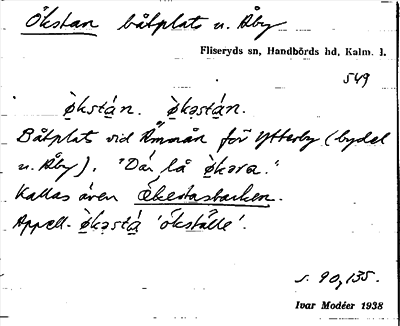 Ökstan båtplats u. Åby
Fliseryds sn, Handbörds hd, Kalm. l.
549
ö̀kstán. ö̀kəstán.
Båtplats vid Ämmån för Ytterby (bydel
u. Åby). "Där lå ö̀kəra."
Kallas även ökestasbacken.
Appell. ö̀kəstá 'ökställe'.
s. 90, 135.
Ivar Modéer 1938